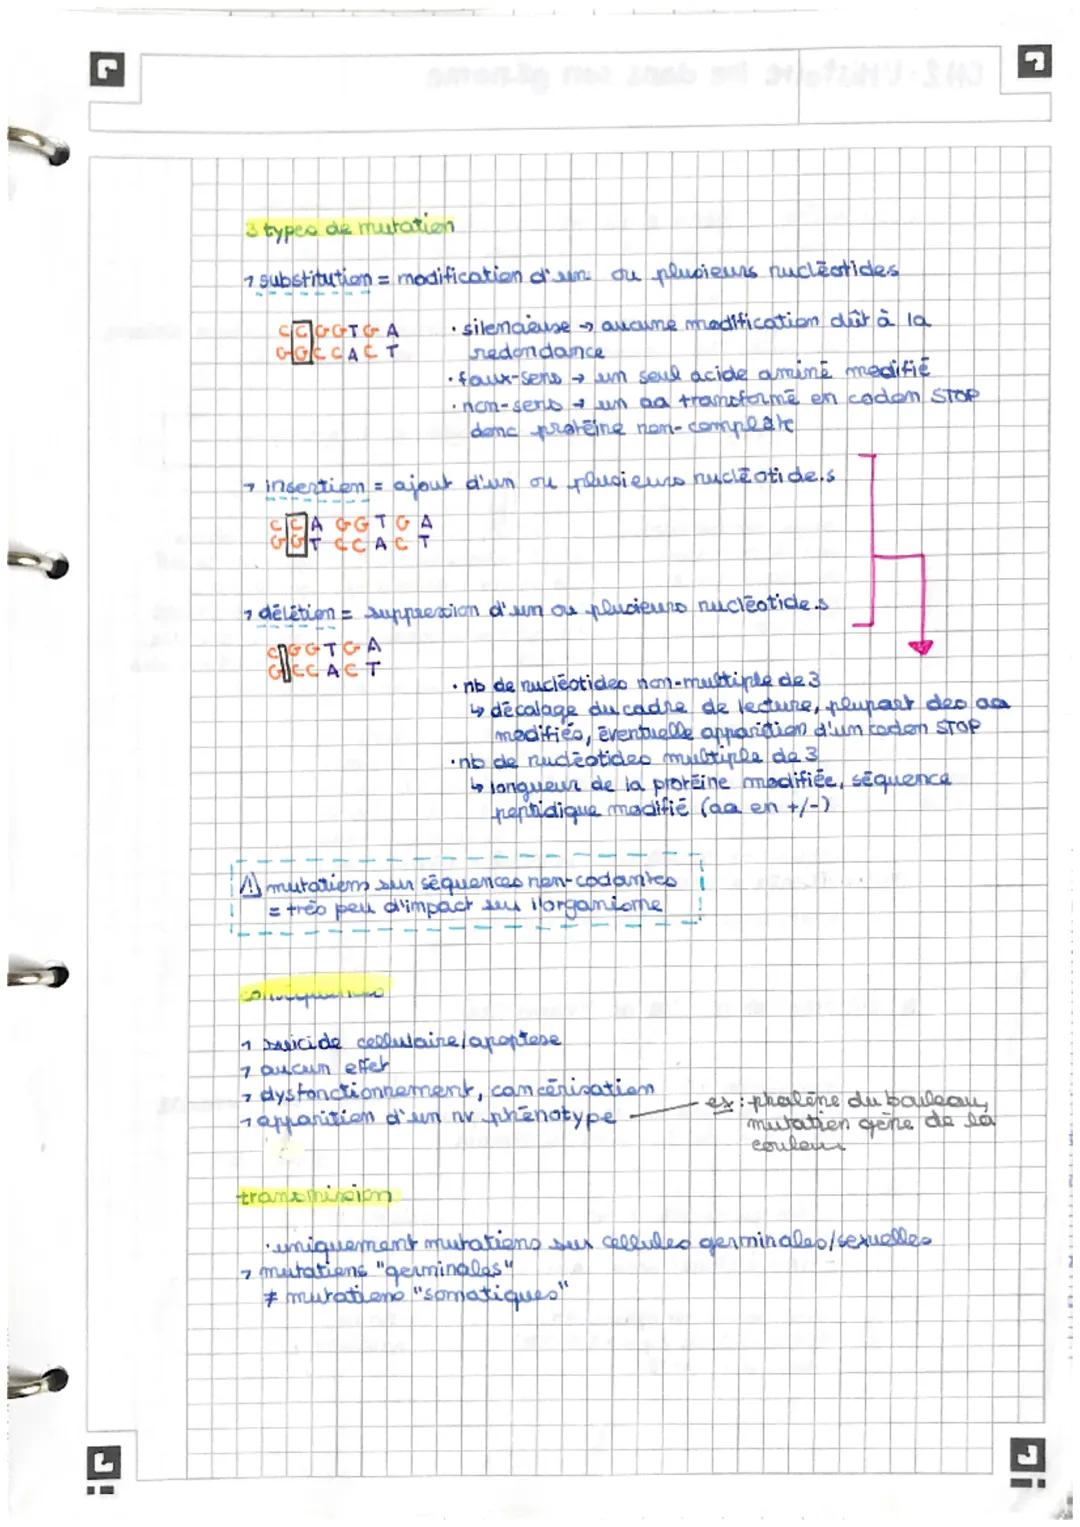 3 types de mutation
→ substitution = modification d'un ou plusieurs nucléotides
C C G G T G A
G G C C A C T
· silencieuse → aucune modification dût à la
redondance
· faux-sens → un seul acide aminé modifié
· non-sens → un aa transformé en codon STOP
donc protéine non-complète
→ insertion = ajout d'un ou plusieurs nucléotide.s
C C A G G T G A
G G T C C A C T
→ délétion = suppression d'un ou plusieurs nucléotide.s
C G G T G A
G C C A C T
· nb de nucléotides non-multiple de 3
↳ décalage du cadre de lecture, plupart des aa
modifiés, éventuelle apparition d'un codon STOP
· nb de nucléotides multiple de 3
↳ longueur de la protéine modifiée, séquence
peptidique modifié (aa en +/-)
⚠ mutations sur séquences non-codantes
= très peu d'impact sur l'organisme
conséquences
→ suicide cellulaire/apoptose
→ aucun effet
→ dysfonctionnement, cancérisation
→ apparition d'un nv phénotype
ex : phalène du bouleau,
mutation gène de la
couleur
transmission
· uniquement mutations sur cellules germinales/sexuelles
→ mutations "germinales"
≠ mutations "somatiques"